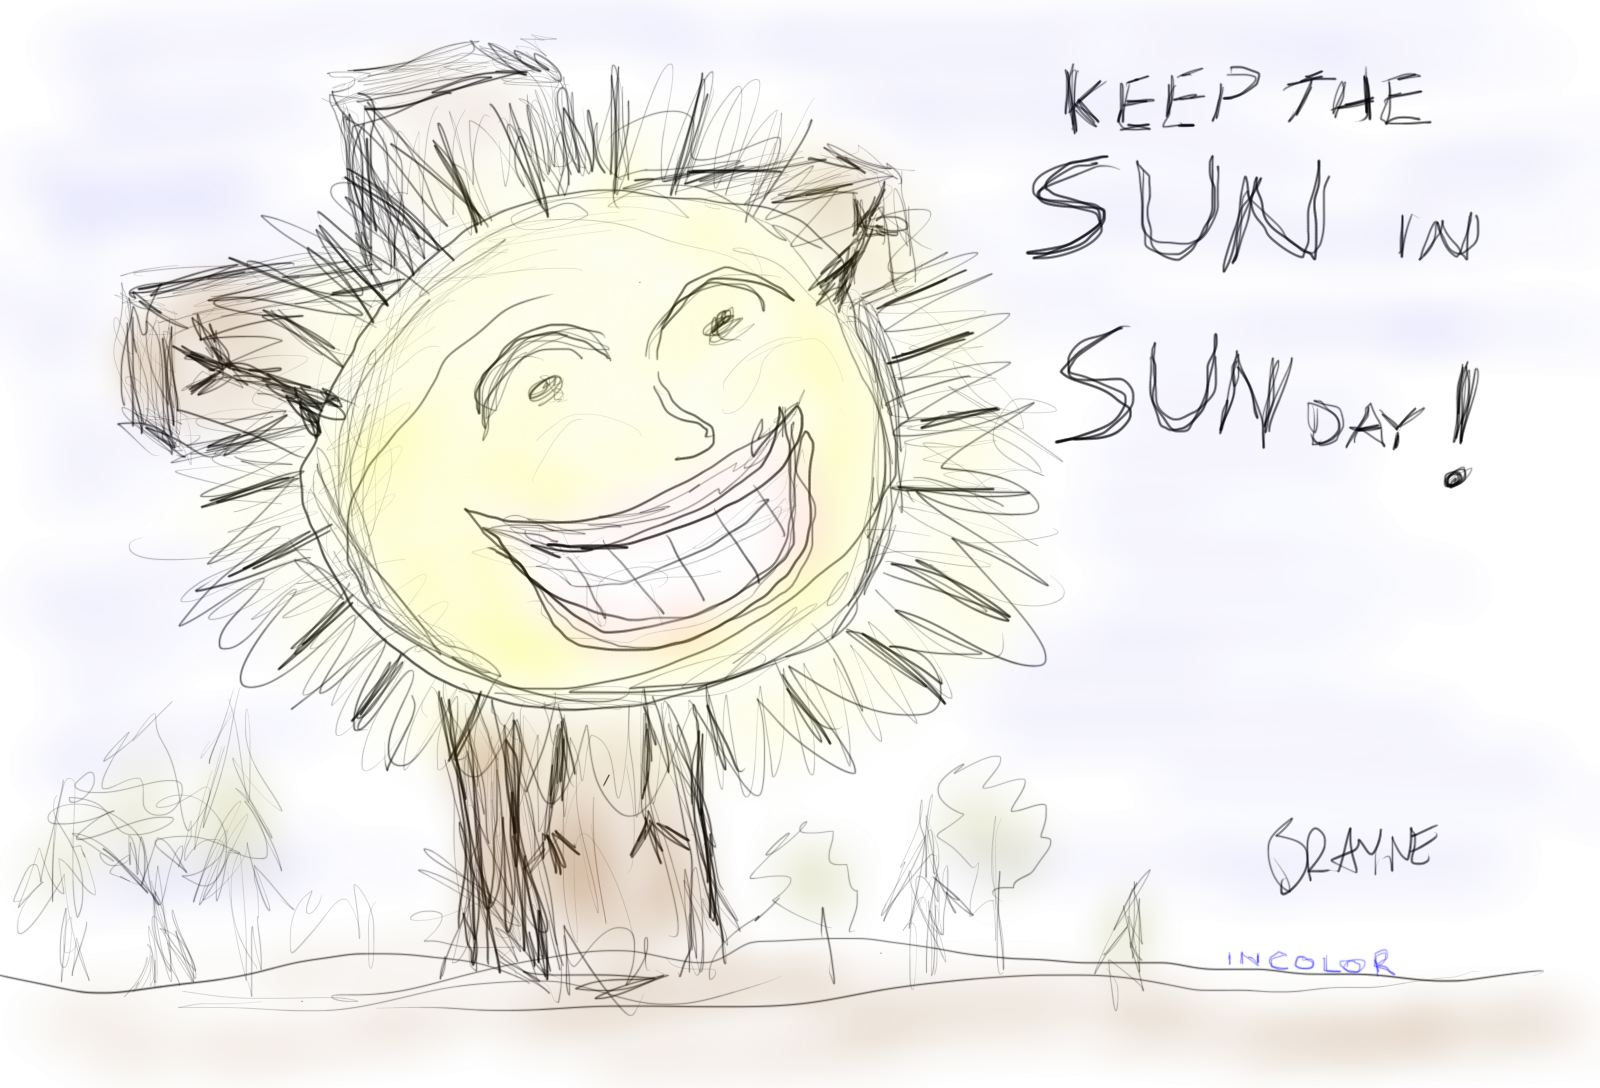 KEEP THE
SUN IN
SUNDAY!
GRAYNE
INCOLOR